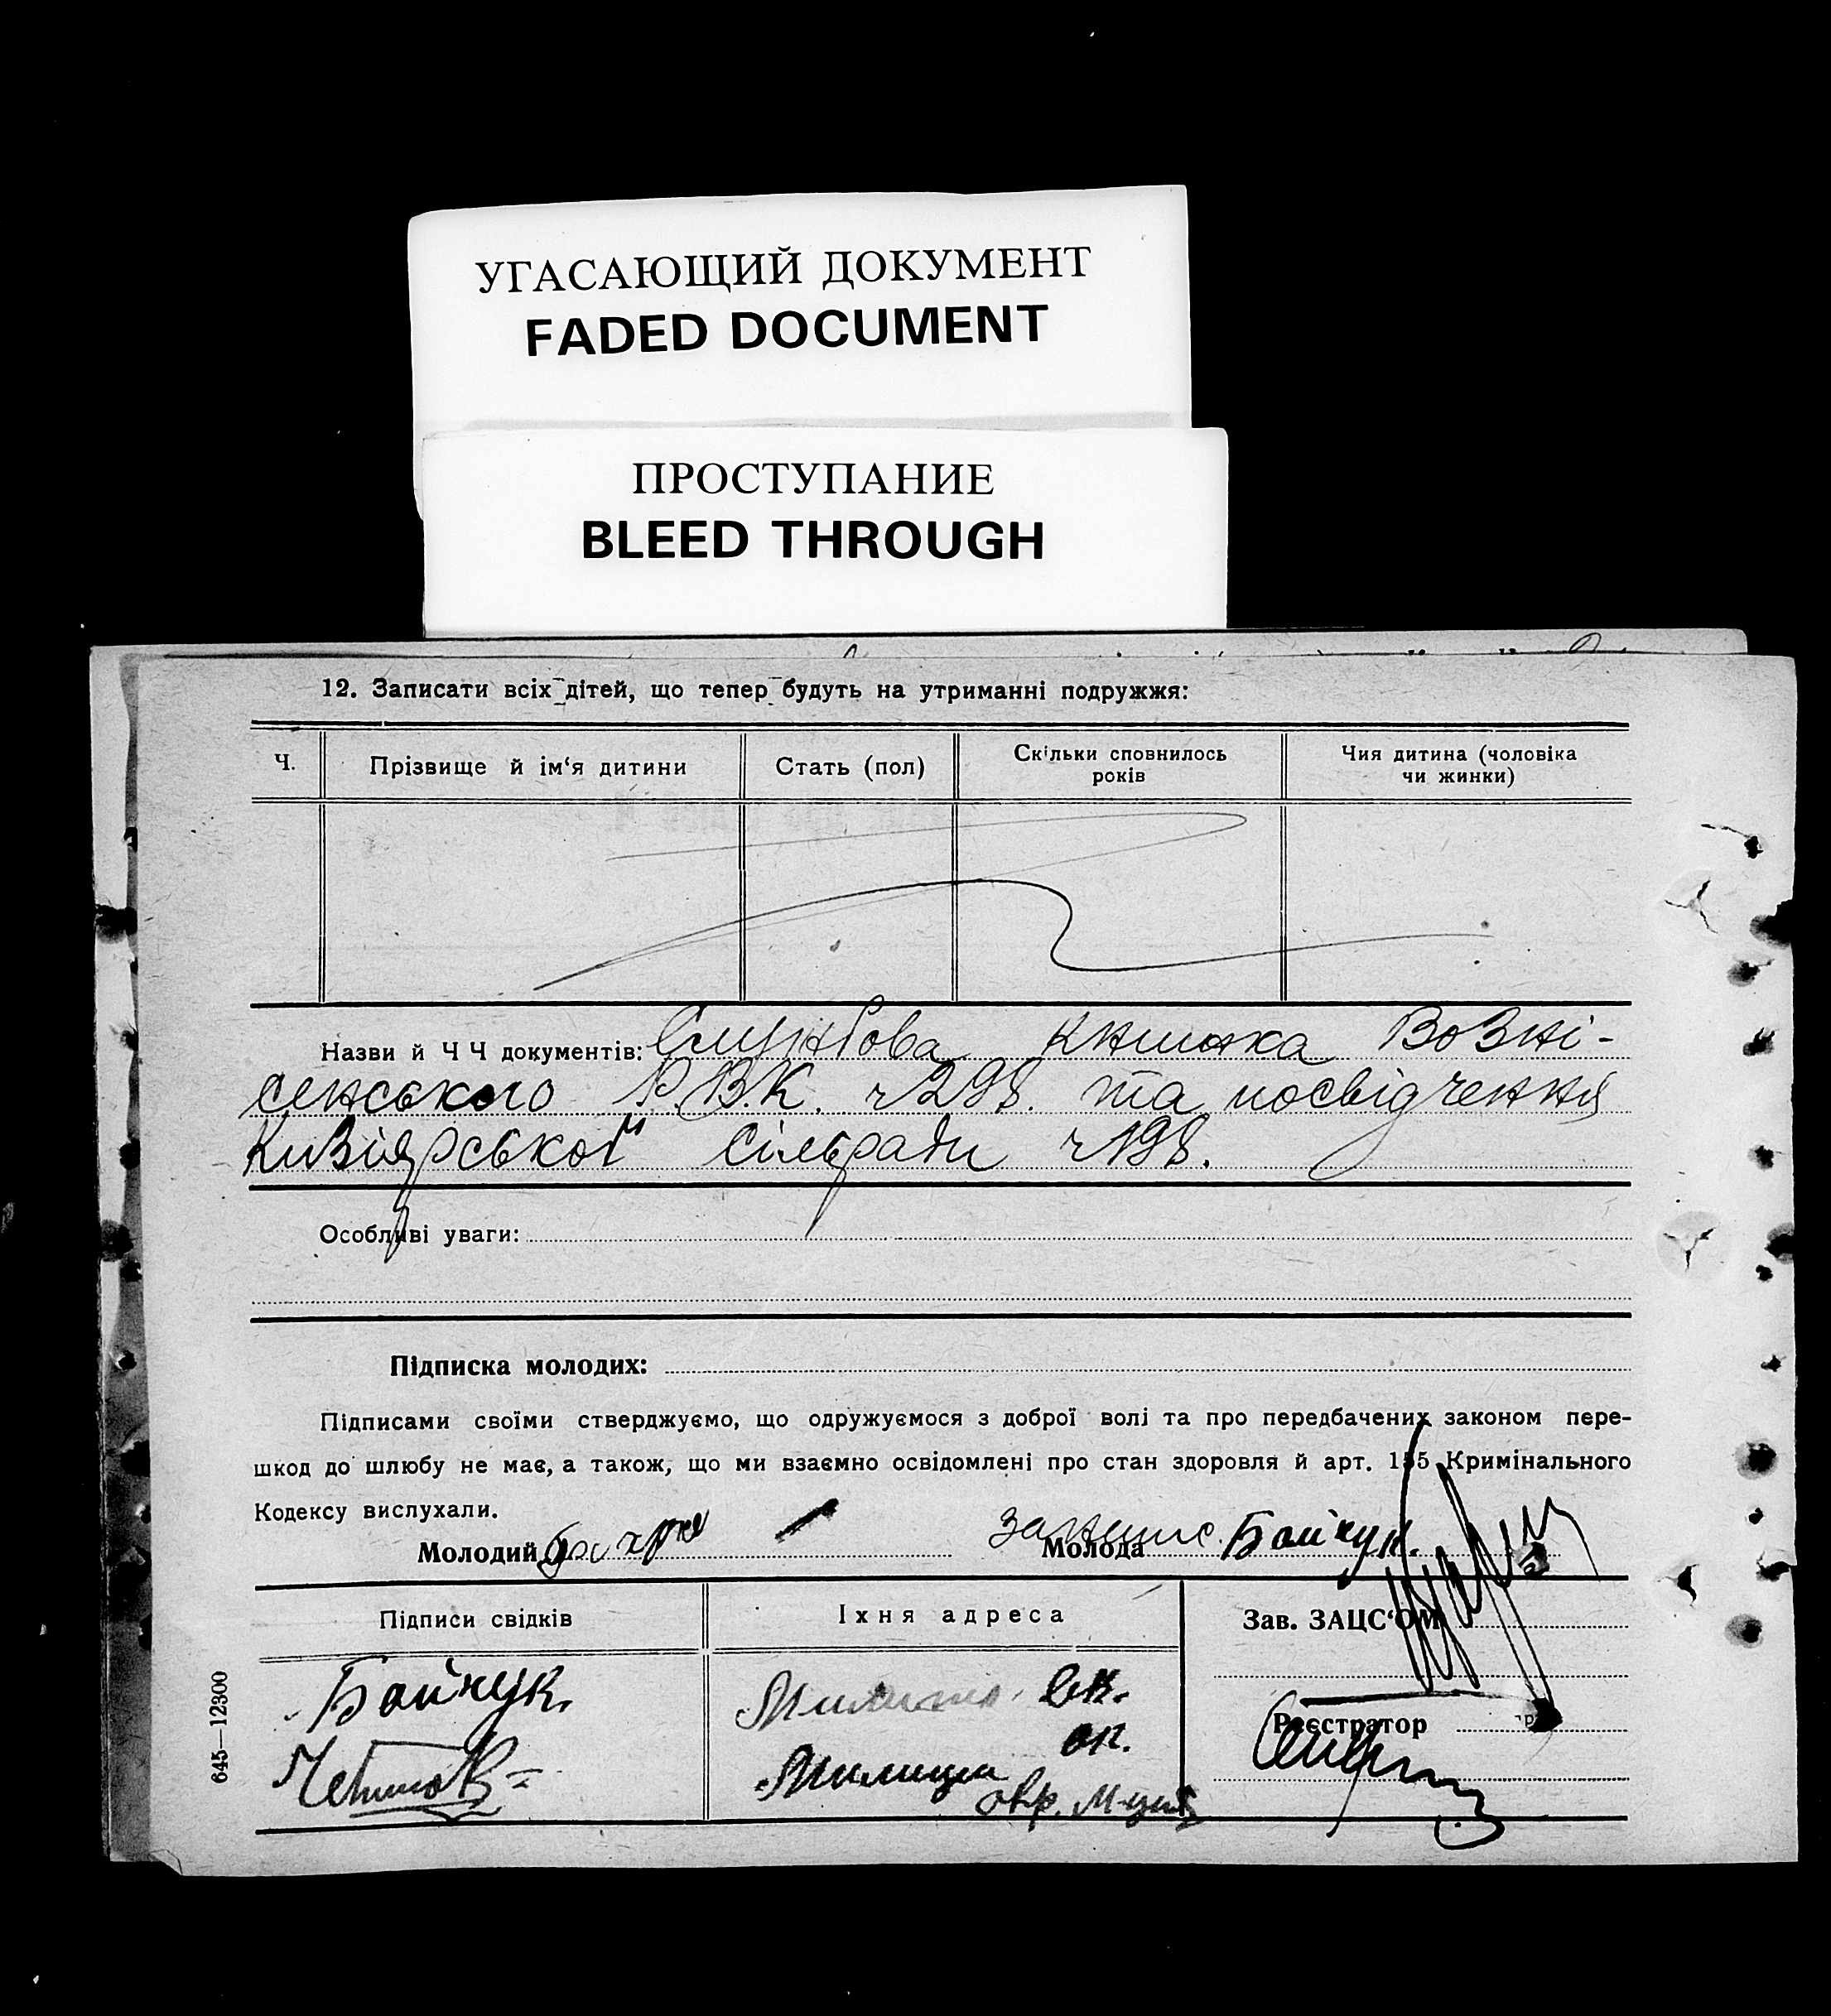 УГАСАЮЩИЙ ДОКУМЕНТ
FADED DOCUMENT
ПРОСТУПАНИЕ
BLEED THROUGH
12. Записати всіх дітей, що тепер будуть на утриманні подружжя:
Ч.
Прізвище й ім‘я дитини
Стать (пол)
Скільки сповнилось
років
Чия дитина (чоловіка
чи жинки)
Назви й Ч Ч документів: Службова книжка Возні-
сенського Р.В.К. ч 298. та посвідчення
Кизіярської сільради ч 198.
Особливі уваги:
Підписка молодих:
Підписами своїми стверджуємо, що одружуємося з доброї волі та про передбачених законом пере-
шкод до шлюбу не має, а також, що ми взаємно освідомлені про стан здоровля й арт. 155 Кримінального
Кодексу вислухали.
Молодий
Молода Бойчук.
Підписи свідків
Їхня адреса
Зав. ЗАЦС‘ОМ
Бойчук
Реєстратор
Милиция
645—12300